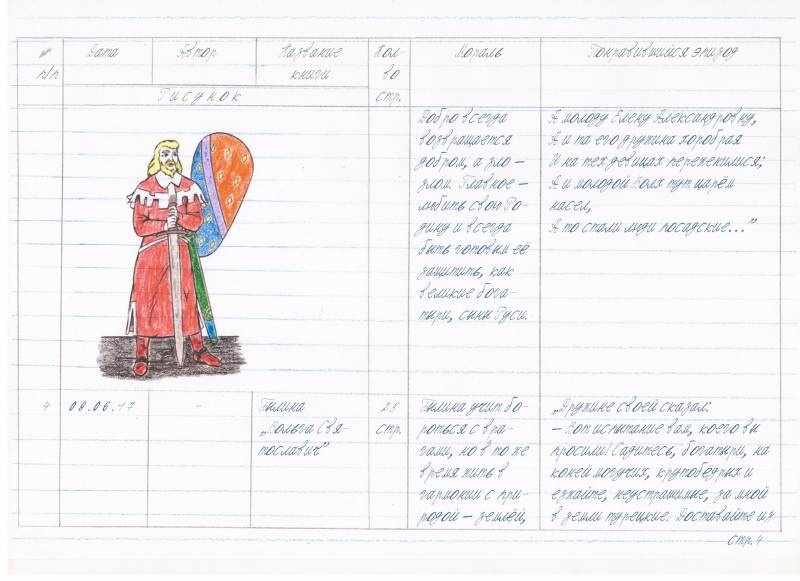 № п/п
Дата
Автор
Название книги
Кол-во стр.
Мораль
Понравившийся эпизод
Рисунок
Добро всегда
возвращается
добром, а зло –
злом. Главное –
любить свою Ро-
дину и всегда
быть готовым её
защитить, как
великие бога-
тыри, сыны Руси.
А молоду Елену Александровну,
А и та его дружина хоробрая
И на тех девицах переженилися;
А и молодой Волх тут царём
насел,
А то стали люди посадские..."
4
09.06.17
-
Былина
„Вольга Свя-
тославич"
стр.
Былина учит бо-
роться с вра-
гами, но в то же
время жить в
гармонии с при-
родой – землёй,
„Дружине своей сказал:
– Вот испытание вам, коего вы
просили! Садитесь, богатыри, на
коней могучих, крутобёдрых и
езжайте, неустрашимые, за мной
в земли турецкие. Доставайте из
стр. 4